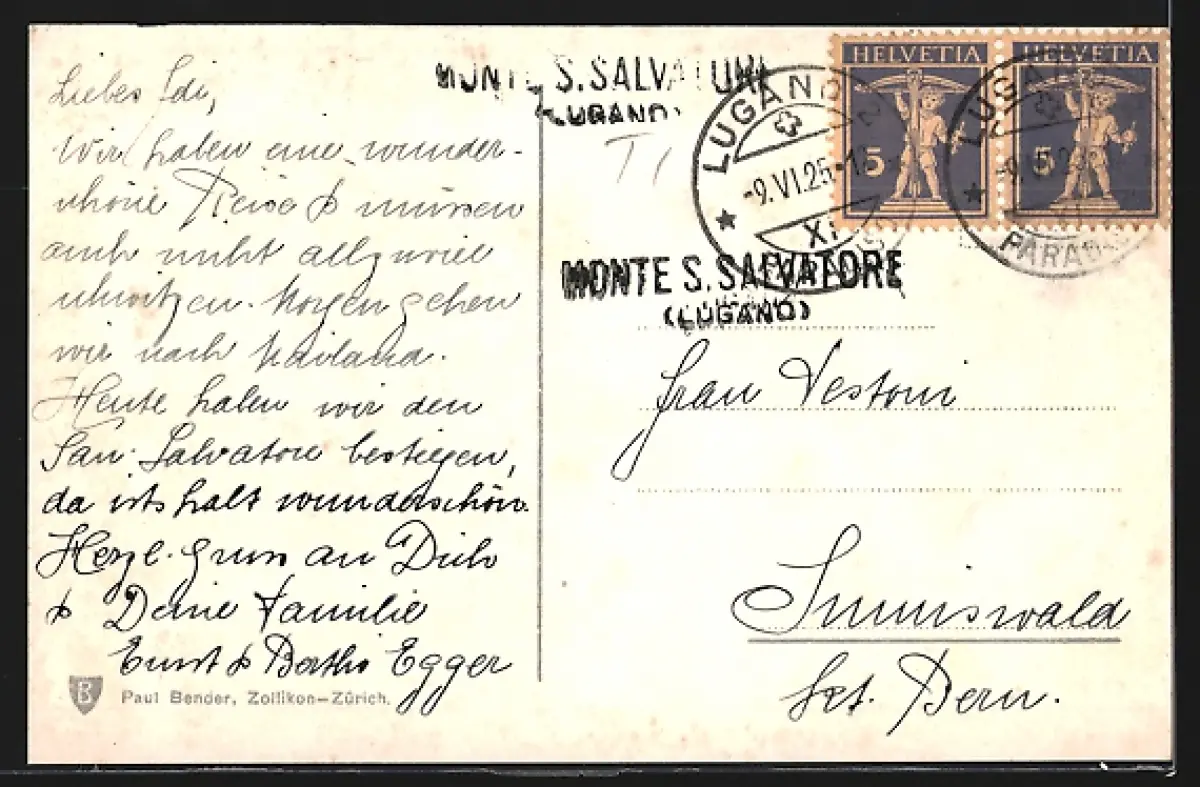 Liebes Idi,
Wir haben eine wunder-
schöne Reise & müssen
auch nicht allzuviel
schwitzen. Morgen gehen
wir nach Mailand.
Heute haben wir den
San Salvatore bestiegen,
da ists halt wunderschön.
Herzl. Gruss an Dich
& Deine Familie
Ernst & Berthi Egger
B
Paul Bender, Zollikon-Zürich.
MONTE S. SALVATORE
(LUGANO)
HELVETIA
5
HELVETIA
5
LUGANO 2
-9.VI.25-
XI
PARADISO
LUGANO
PARADISO
MONTE S. SALVATORE
(LUGANO)
Frau
Sumiswald
Kt. Bern.